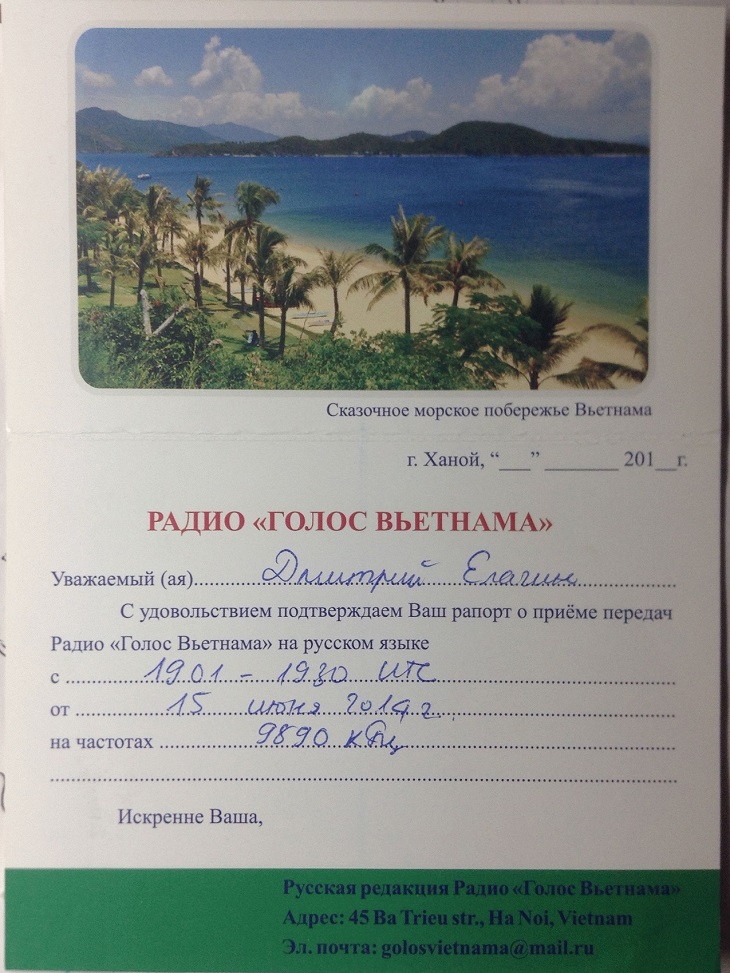 Сказочное морское побережье Вьетнама
г. Ханой, “___” _______ 201__г.
РАДИО «ГОЛОС ВЬЕТНАМА»
Уважаемый (ая)..........Дмитрий Елагин..........
С удовольствием подтверждаем Ваш рапорт о приёме передач
Радио «Голос Вьетнама» на русском языке
с ..........1901 – 1930 UTC..........
от ..........15 июня 2014 г...........
на частотах ..........9890 кГц..........
Искренне Ваша,
Русская редакция Радио «Голос Вьетнама»
Адрес: 45 Ba Trieu str., Ha Noi, Vietnam
Эл. почта: golosvietnama@mail.ru